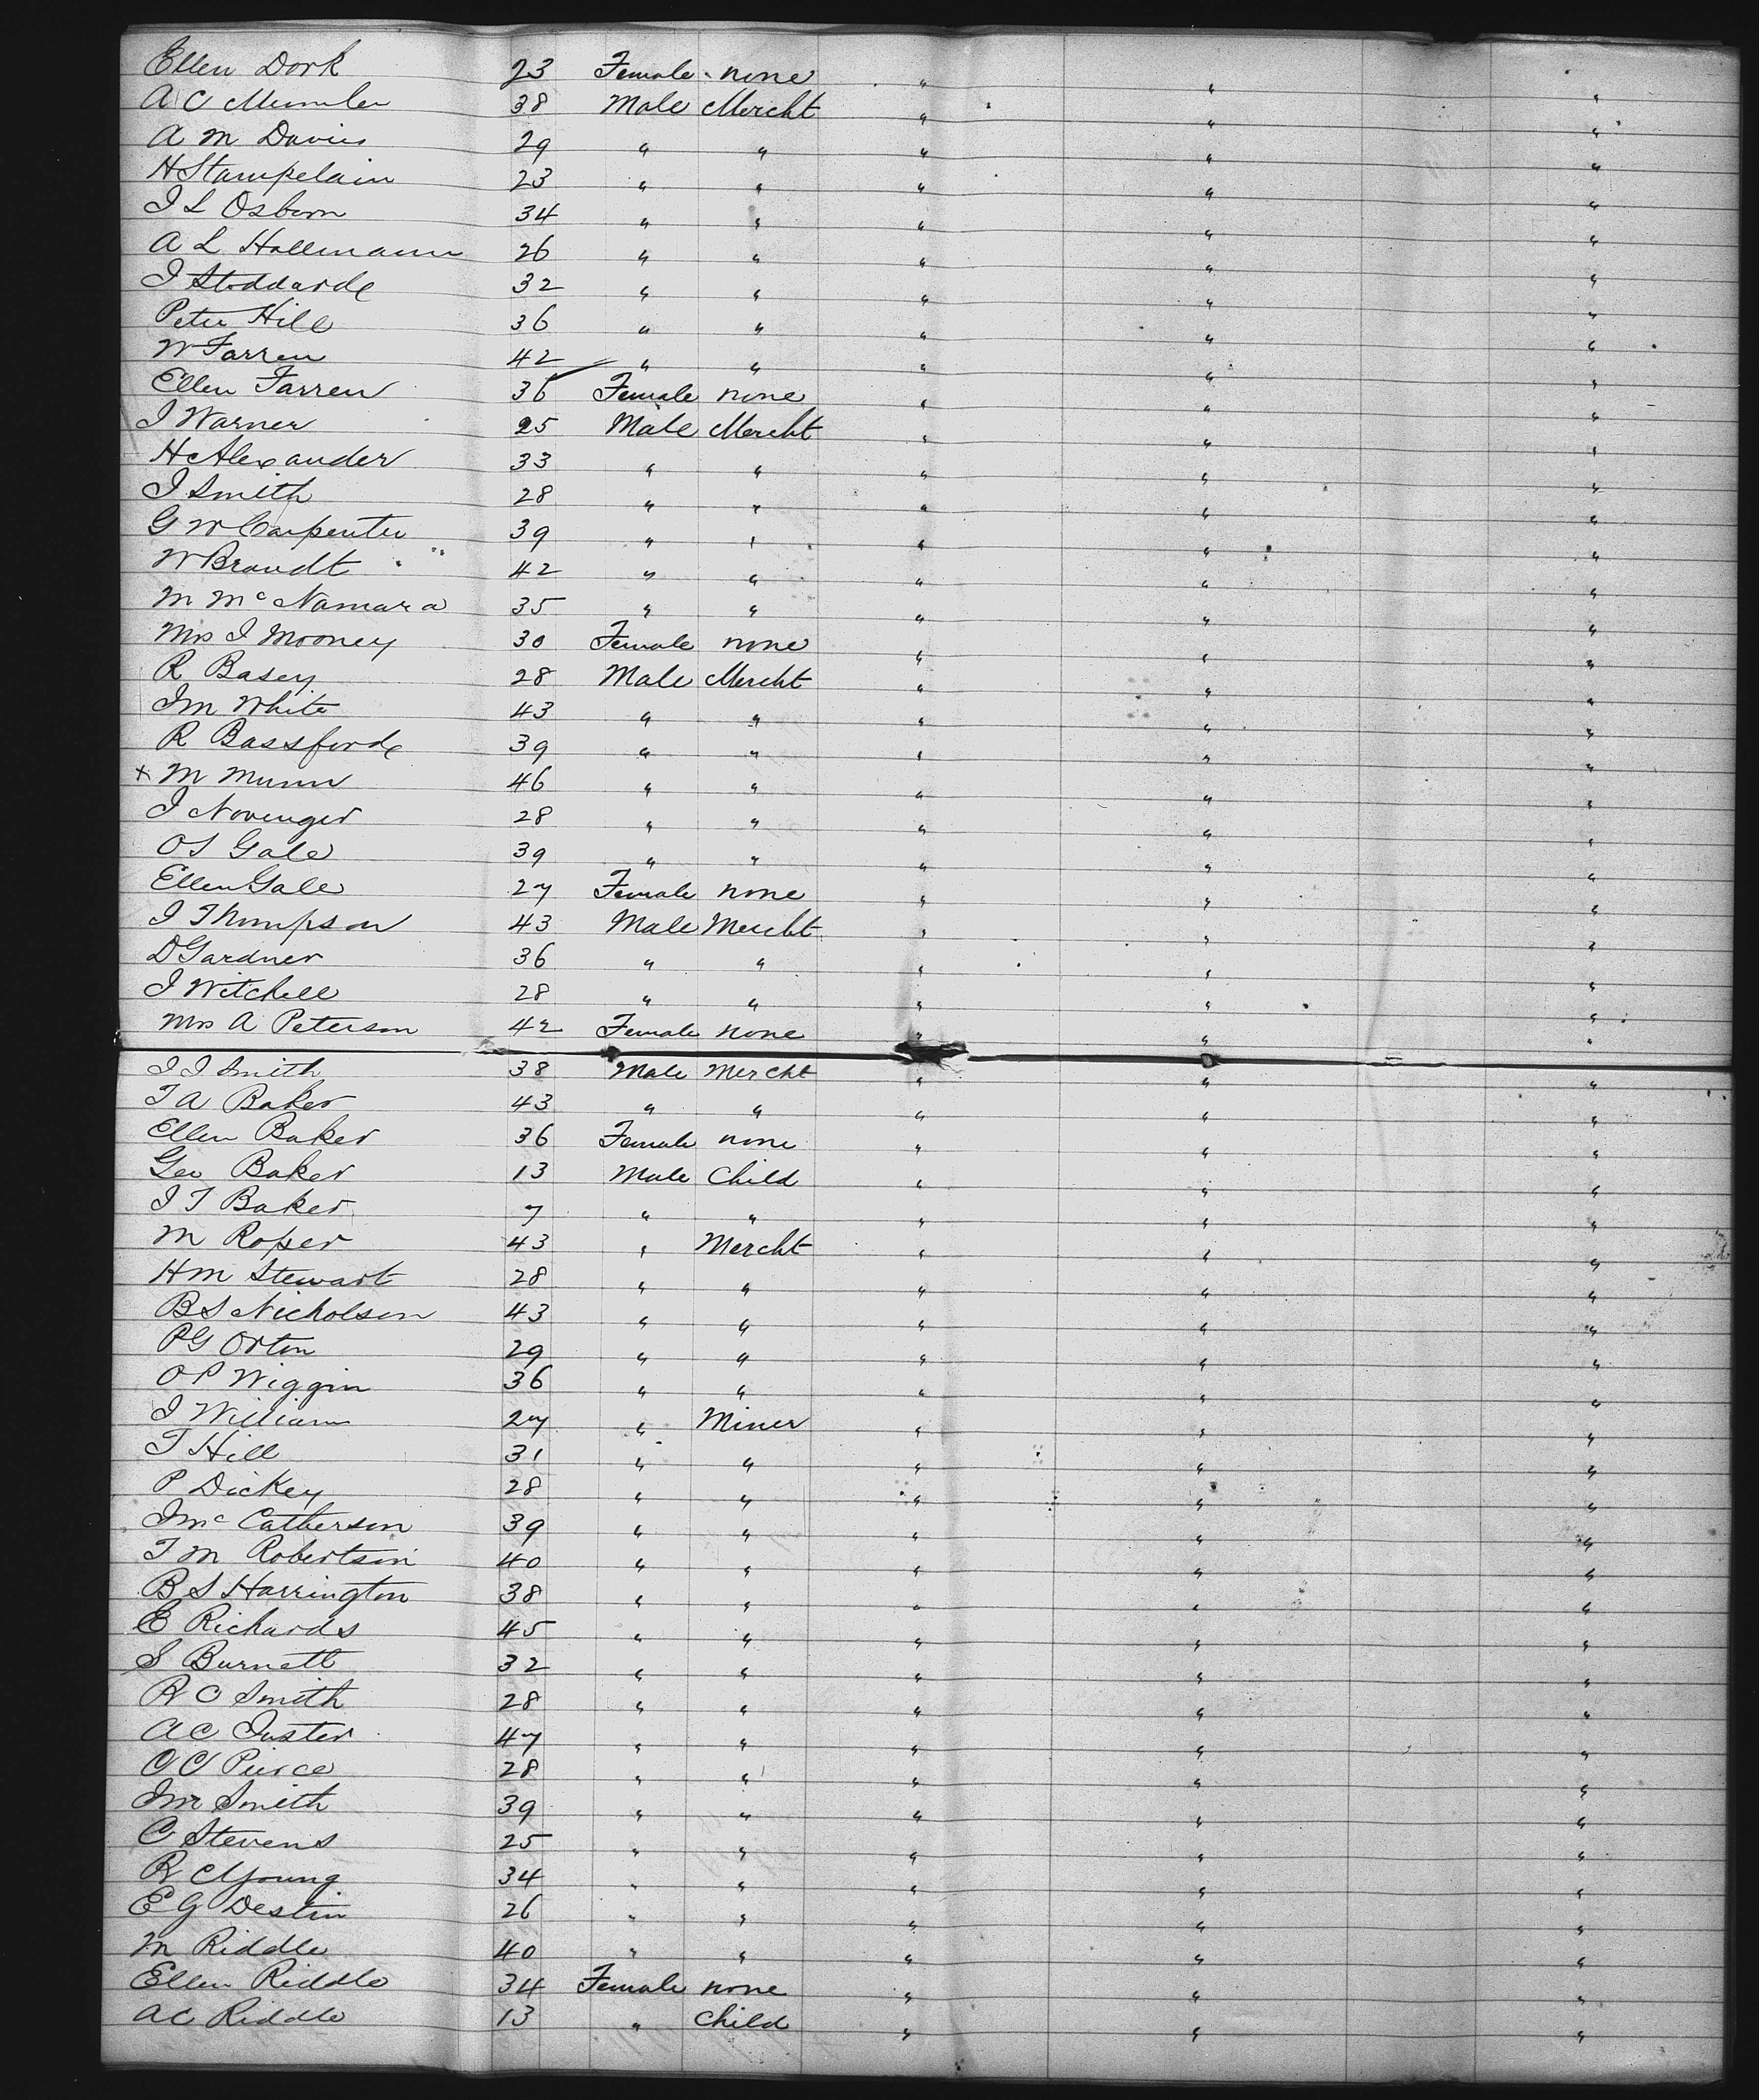 Ellen Dork 23 Female none " " "
A C Mumler 38 Male Mercht " " "
A M Davis 29 " " " " "
H Stampelain 23 " " " " "
I L Osborn 34 " " " " "
A L Hallmann 26 " " " " "
I Stoddard 32 " " " " "
Peter Hill 36 " " " " "
W Farren 42 " " " " "
Ellen Farren 36 Female none " " "
I Warner 25 Male Mercht " " "
H Alexander 33 " " " " "
I Smith 28 " " " " "
G W Carpenter 39 " " " " "
W Brandt 42 " " " " "
M McNamara 35 " " " " "
Mrs I Mooney 30 Female none " " "
R Basey 28 Male Mercht " " "
I M White 43 " " " " "
R Bassford 39 " " " " "
x M Munn 46 " " " " "
I Novenger 28 " " " " "
O S Gale 39 " " " " "
Ellen Gale 27 Female none " " "
I Thompson 43 Male Mercht " " "
D Gardner 36 " " " " "
I Witchell 28 " " " " "
Mrs A Peterson 42 Female none " " "
I I Smith 38 Male Mercht " " "
T A Baker 43 " " " " "
Ellen Baker 36 Female none " " "
Geo Baker 13 Male Child " " "
I T Baker 7 " " " " "
M Roper 43 " Mercht " " "
H M Stewart 28 " " " " "
B S Nicholson 43 " " " " "
P G Orton 29 " " " " "
O P Wiggin 36 " " " " "
I William 27 " Miner " " "
T Hill 31 " " " " "
P Dickey 28 " " " " "
I McCatherson 39 " " " " "
T M Robertson 40 " " " " "
B S Harrington 38 " " " " "
E Richards 45 " " " " "
S Burnett 32 " " " " "
R O Smith 28 " " " " "
A C Juster 47 " " " " "
O C Pierce 28 " " " " "
I M Smith 39 " " " " "
C Stevens 25 " " " " "
R C Young 34 " " " " "
E G Destin 26 " " " " "
M Riddle 40 " " " " "
Ellen Riddle 34 Female none " " "
A C Riddle 13 " Child " " "